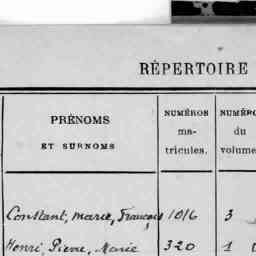 RÉPERTOIRE
PRÉNOMS
ET SURNOMS
NUMÉROS
ma-
tricules.
NUMÉRO
du
volume
Constant, marie, François 1016 3
Henri, Pierre, Marie 320 1